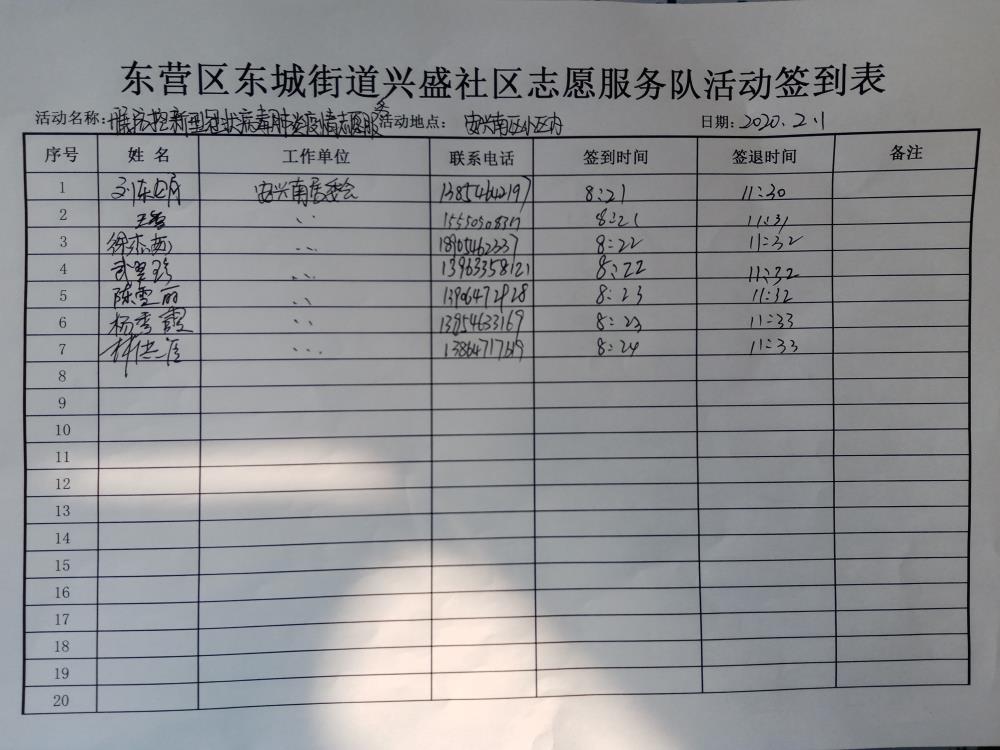 东营区东城街道兴盛社区志愿服务队活动签到表
活动名称: 联防控新型冠状病毒肺炎疫情志愿服务 活动地点: 安兴南区小区内 日期: 2020.2.1
序号 姓名 工作单位 联系电话 签到时间 签退时间 备注
1 安兴南居委会 13854642197 8:21 11:30
2 王雪 〃 8:21 11:31
3 〃 18905462337 8:22 11:32
4 〃 13963358121 8:22 11:32
5 陈雪丽 〃 13906472928 8:23 11:32
6 杨秀霞 〃 13954633169 8:23 11:33
7 〃 13864717619 8:24 11:33
8
9
10
11
12
13
14
15
16
17
18
19
20